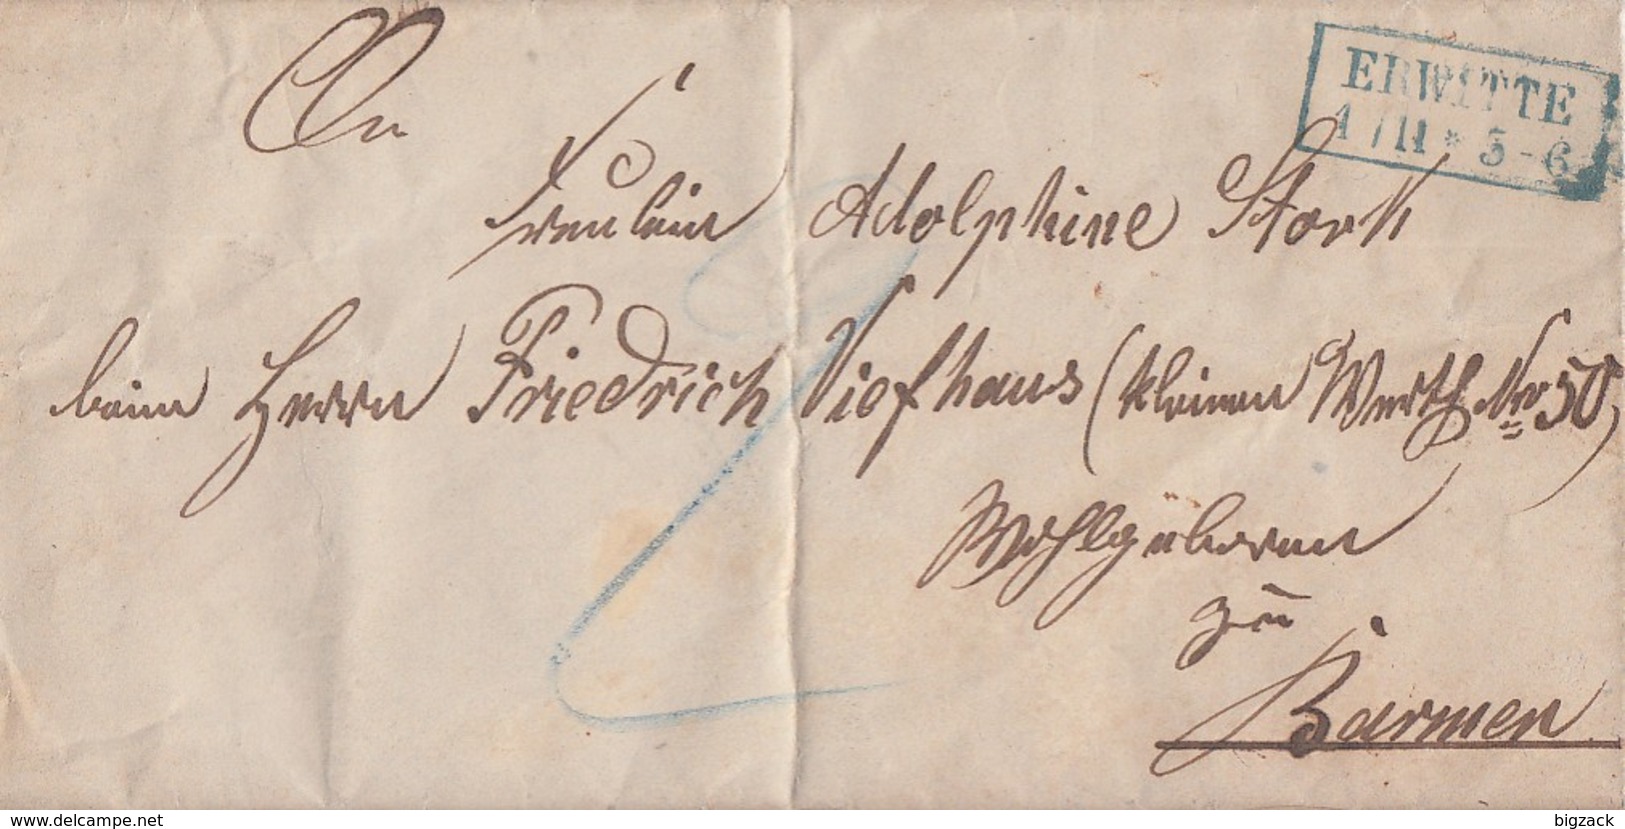 An
ERWITTE
1/11 * 5-6
Fräulein Adolphine Stork
beim Herrn Friedrich Viefhaus (kleinen Werth No 50)
Wohlgeboren
zu
Barmen
delcampe.net
bigzack